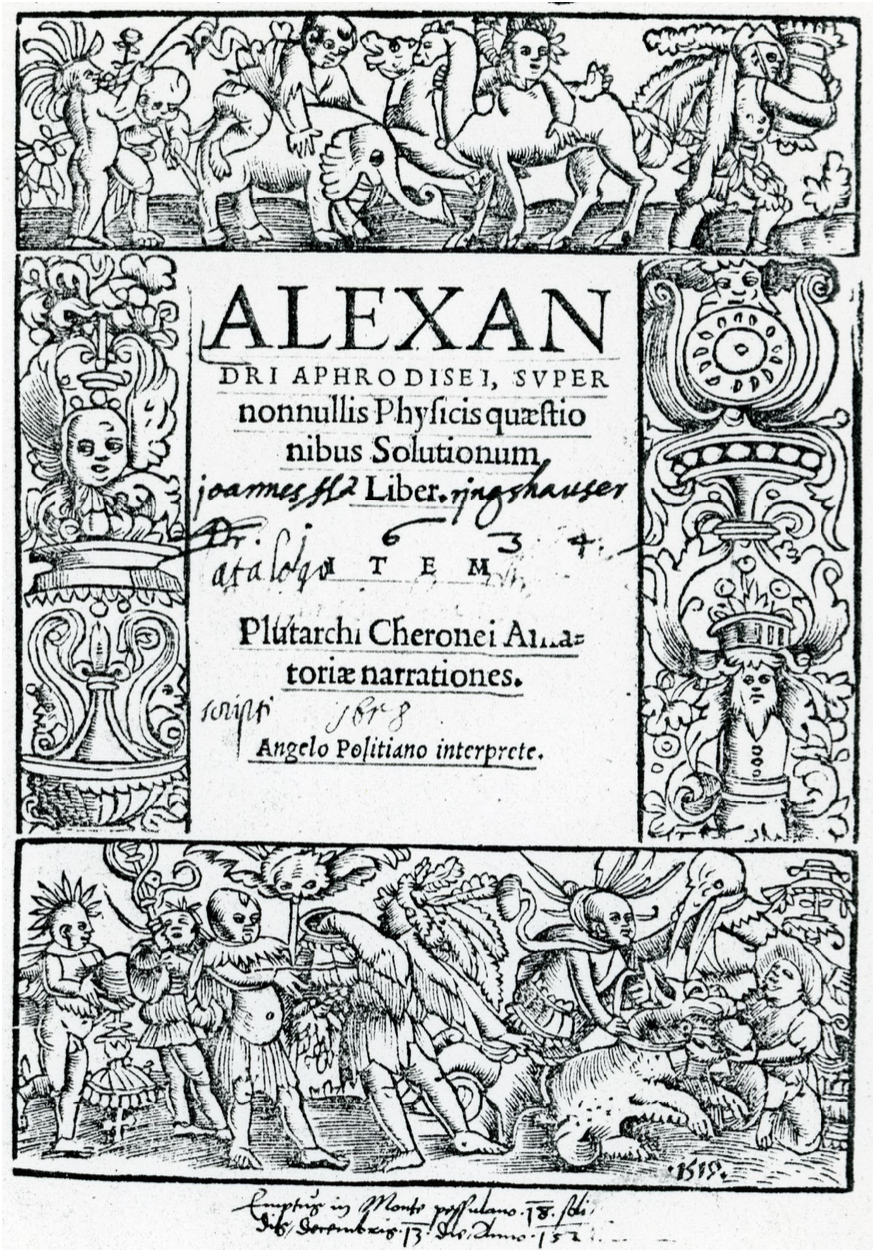 ALEXAN
DRI APHRODISEI, SVPER
nonnullis Phyſicis quæſtio
nibus Solutionum
joannes Liber. ringshauser
Dr. 6 3 4.
I T E M
Plutarchi Cheronei Ama=
toriæ narrationes.
scripti
Angelo Politiano interprete.
.1519.
Emptus in Monte pessulano .18. soli
dis, decembris .13. die, Anno .152